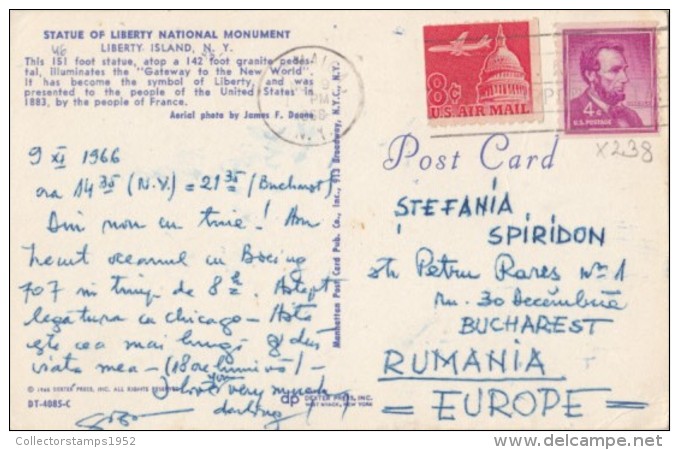 STATUE OF LIBERTY NATIONAL MONUMENT
LIBERTY ISLAND, N. Y.
This 151 foot statue, atop a 142 foot granite pedes-
tal, illuminates the "Gateway to the New World".
It has become the symbol of Liberty, and was
presented to the people of the United States in
1883, by the people of France.
Aerial photo by James F. Doane
46
PM
N.Y.
8¢
U.S. AIR MAIL
4¢
U.S. POSTAGE
X238
Post Card
9 XI 1966
ora 14 35 (N.Y.) = 21 35 (Bucharest)
Din nou cu tine! Am
trecut oceanul cu Boeing
707 în timp de 8 Aștept
legatura cu Chicago - Asta
este cea mai lungă zi din
viata mea - (18 ore lumină)! -
I love you very much
darling
STEFANIA
SPIRIDON
str Petru Rares No 1
30 Decembrie
BUCHAREST
RUMANIA
= EUROPE =
Manhattan Post Card Pub. Co., Inc., 913 Broadway, N.Y.C., N.Y.
© 1966 DEXTER PRESS, INC. ALL RIGHTS RESERVED
DT-4085-C
dp DEXTER PRESS, INC.
WEST NYACK, NEW YORK
Collectorstamps1952
www.delcampe.net